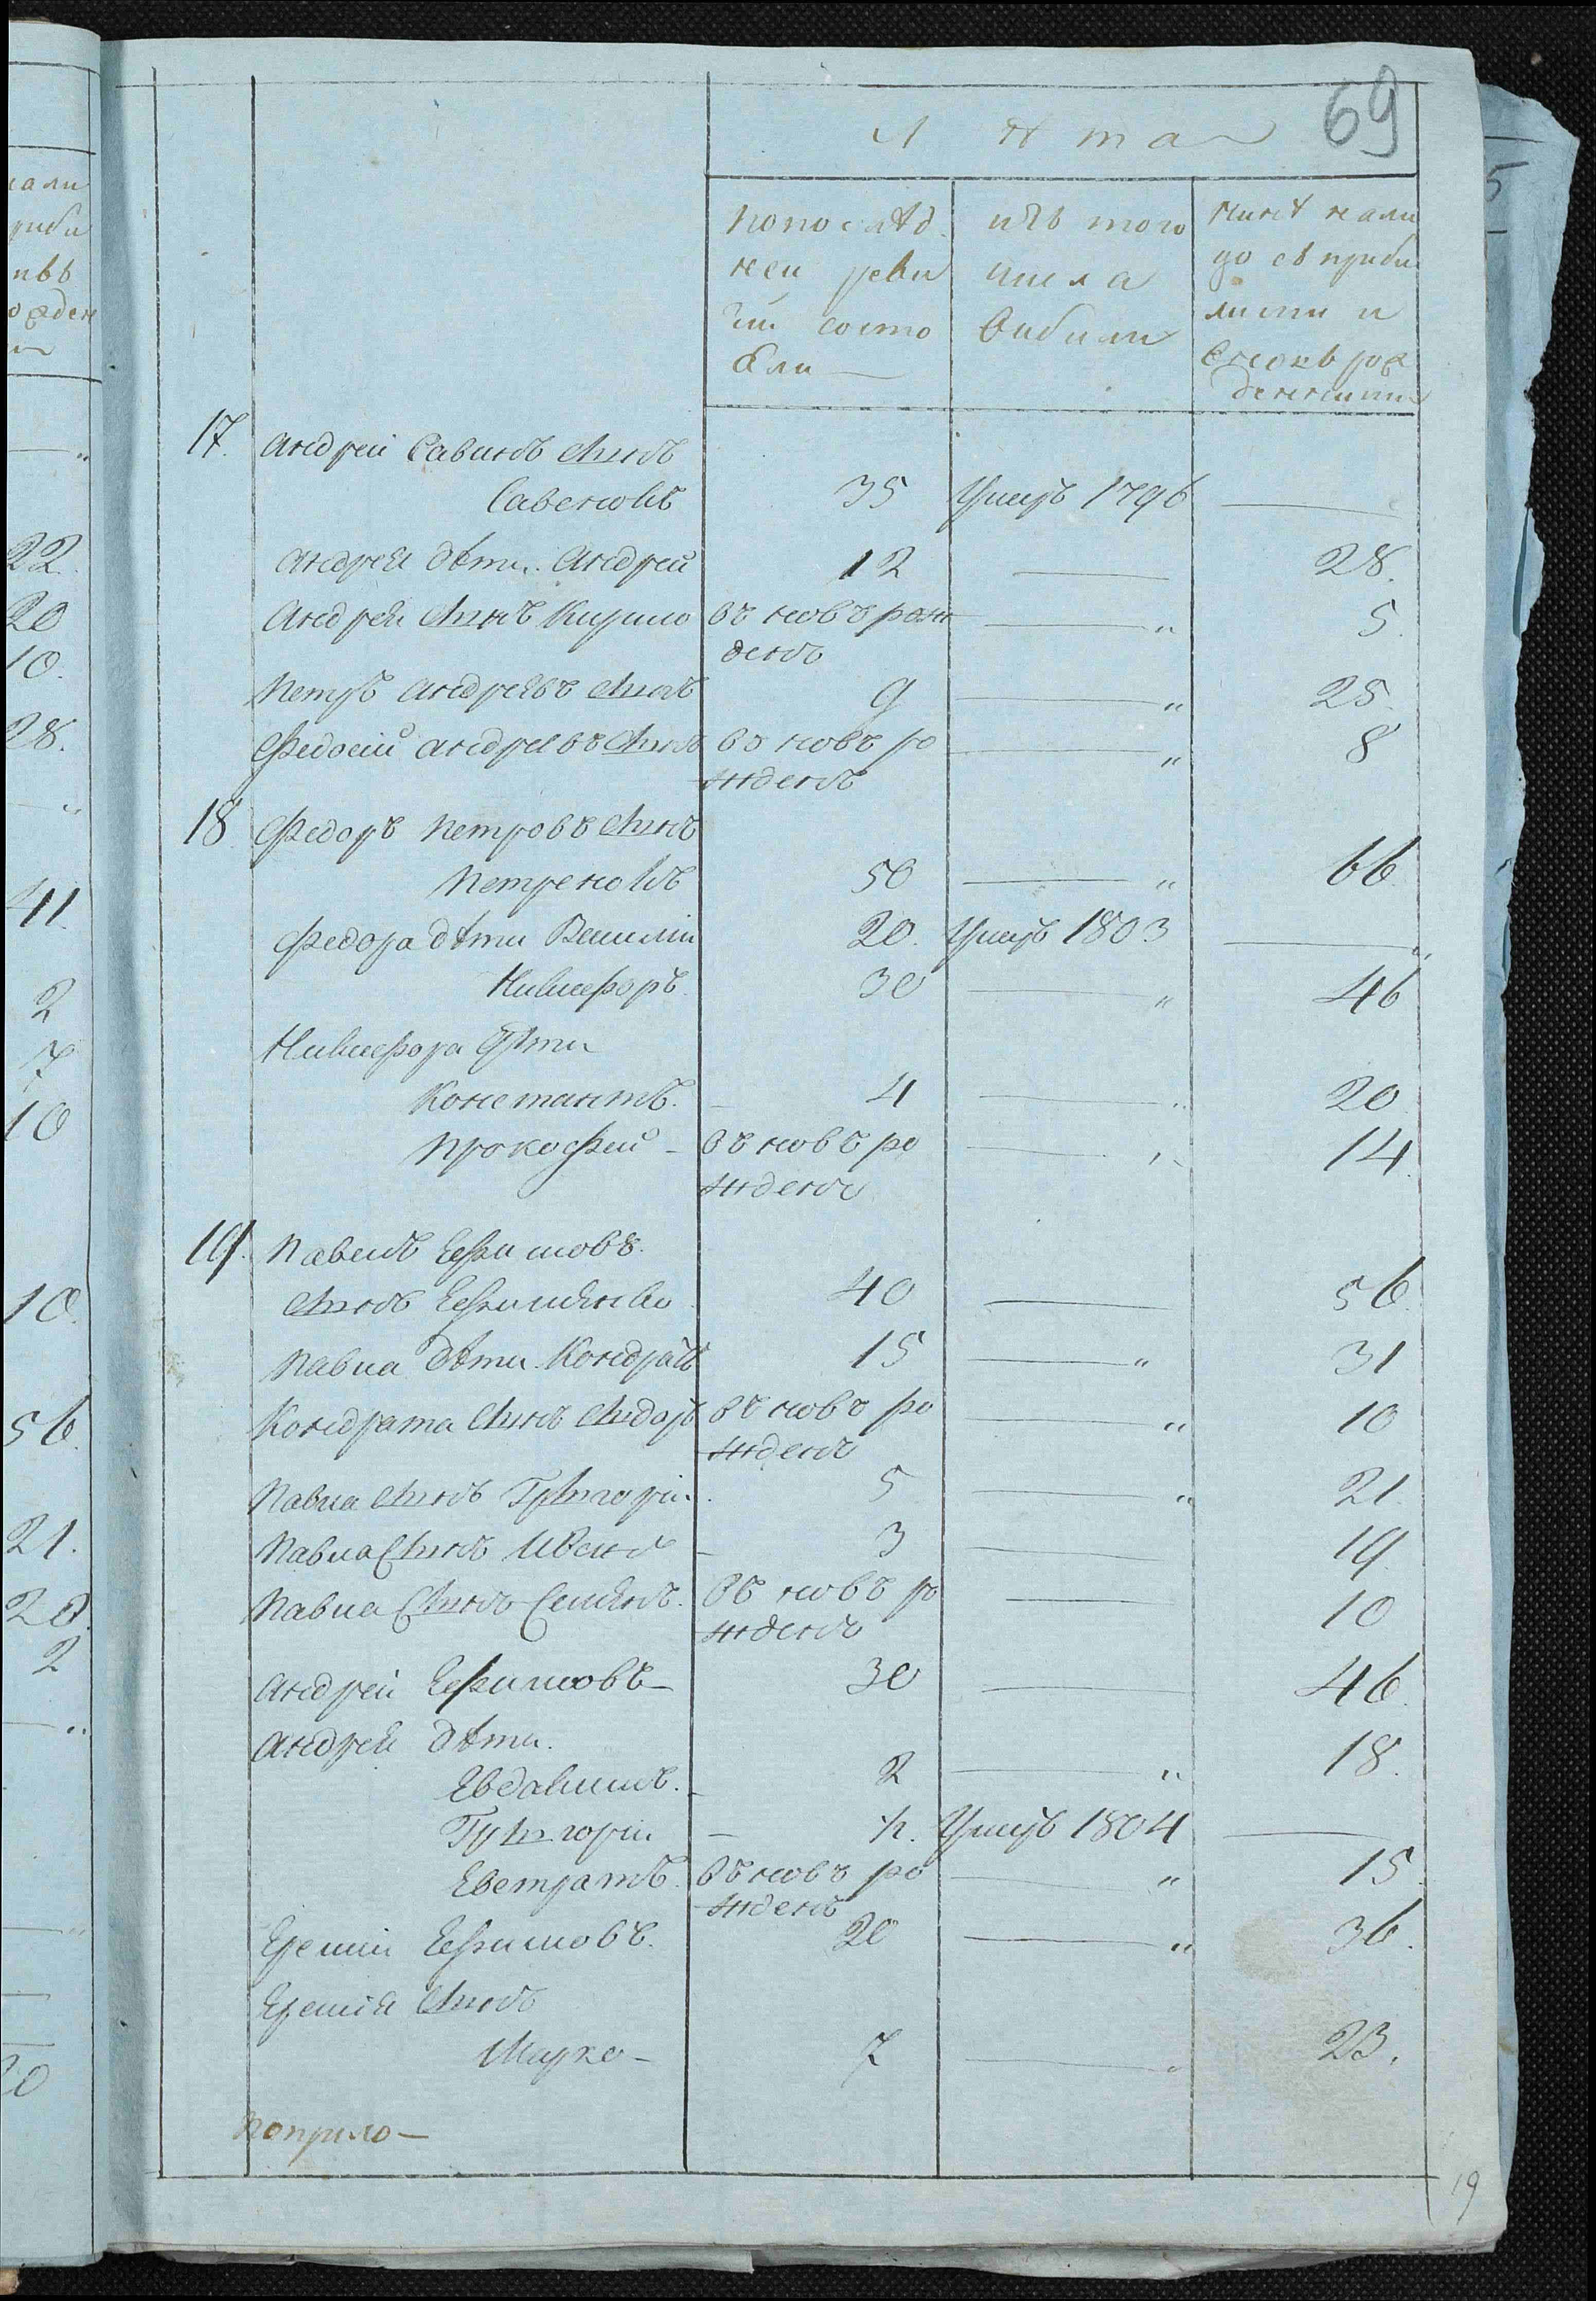 69
Лѣта
Попослѣд
ней реви
зіи состо
яли
изъ того
числа
выбыли
нинѣ нали
цо съ прибы
лыми и
вновь рож
денными
17. Андрей Савинъ сынъ
Савенковъ 35 Умеръ 1796 —
Андрея дѣти. Андрей 12 — 28.
Андрея сынъ Кирило въ новъ рож — " 5.
денъ
Петръ Андреевъ сынъ 9 — " 25.
Федосій Андреевъ сынъ въ новъ ро — " 8
жденъ
18 Федоръ Петровъ сынъ
Петренковъ 50 — " 66.
Федора дѣти Василій 20. Умеръ 1803 — "
Никифоръ 30 — " 46
Никифора дѣти
Константъ. 4 — " 20
Прокофей — въ новъ ро — " 14.
жденъ
19. Павелъ Ефимовъ.
сынъ 40 — 56.
Павла дѣти. Кондратъ 15 — " 31
Кондрата сынъ Сидоръ въ новъ ро — " 10
жденъ
Павла сынъ Григорій. 5 — " 21.
Павла сынъ Иванъ — 3 — 19.
Павла сынъ Семенъ. въ новъ ро — 10
жденъ
Андрей Ефимовъ — 30 — 46.
Андрея дѣти.
Евдокимъ. — 2 — " 18.
Григорій — Умеръ 1804 —
Евстратъ. въ новъ ро — " 15.
жденъ
Еремій Ефимовъ. 20 — " 36.
Еремія сынъ
Марко — 7 — " 23.
19